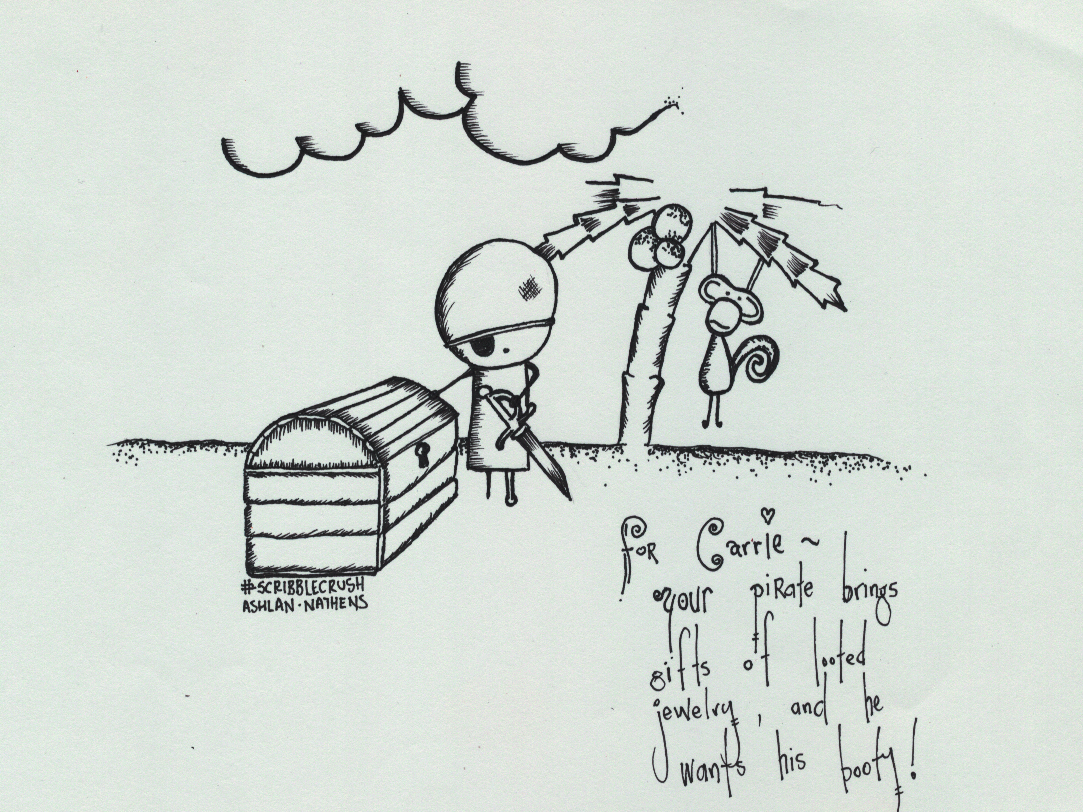 #SCRIBBLECRUSH
ASHLAN·NATHENS
for Carrie ~
your pirate brings
gifts of looted
jewelry, and he
wants his booty!